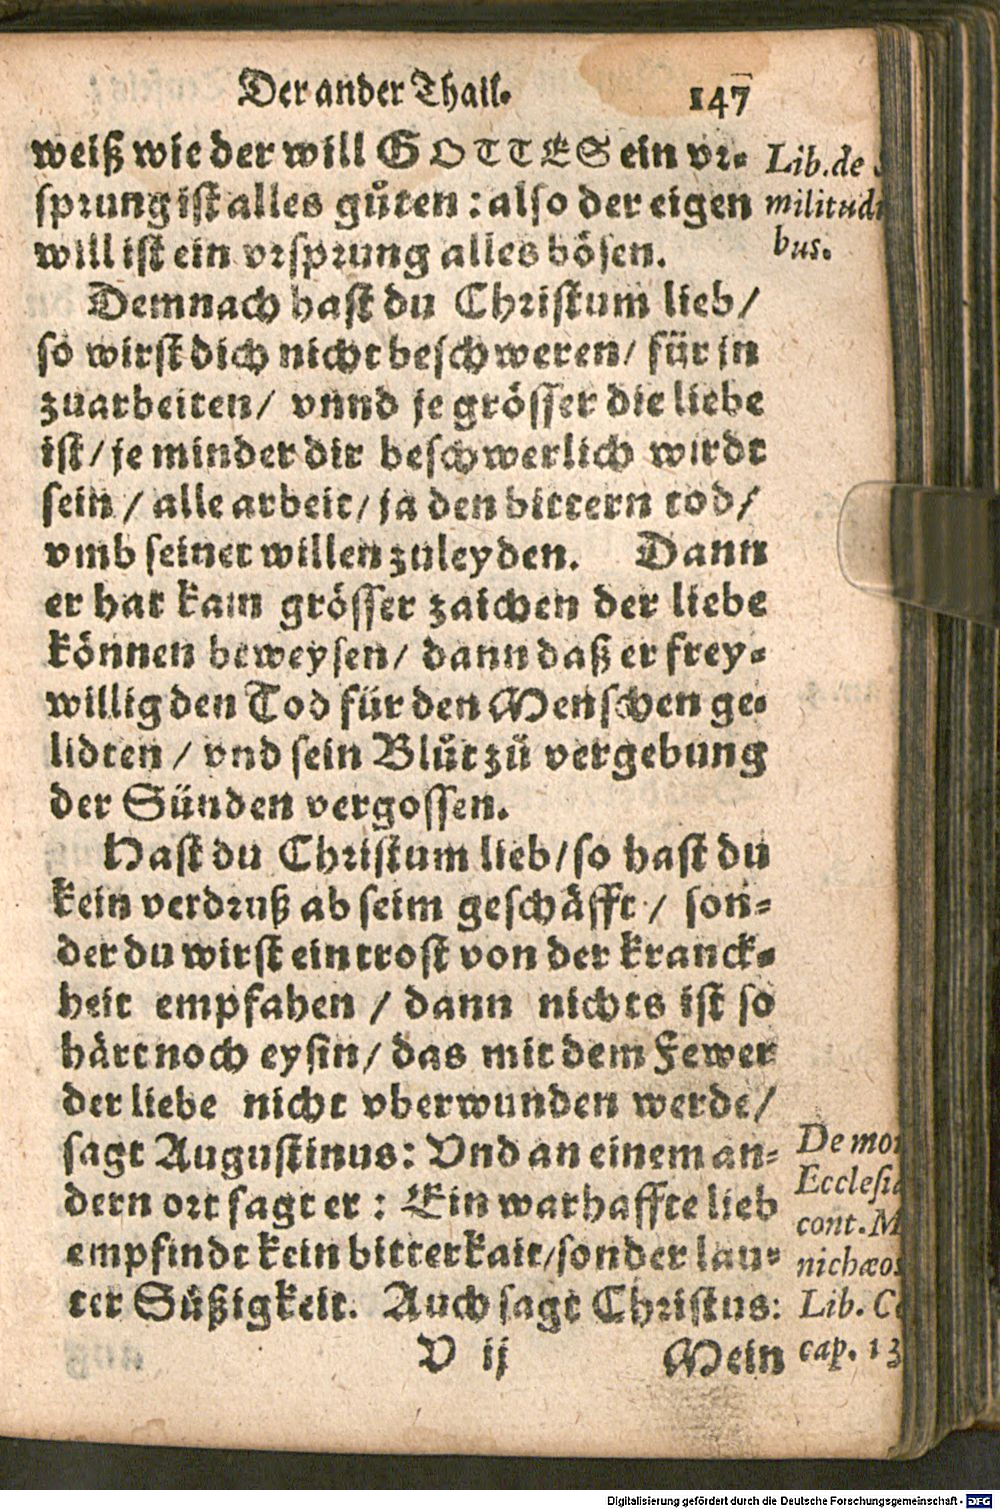 Der ander Thail.
147
weiß wie der will GOTTES ein vr-
sprung ist alles gůten: also der eigen
will ist ein vrsprung alles bösen.
Lib. de
militudi
bus.
Demnach hast du Christum lieb/
so wirst dich nicht beschweren/ für jn
zuarbeiten/ vnnd je grösser die liebe
ist/ je minder dir beschwerlich wirdt
sein/ alle arbeit/ ja den bittern tod/
vmb seinet willen zuleyden. Dann
er hat kain grösser zaichen der liebe
können beweysen/ dann daß er frey-
willig den Tod für den Menschen ge-
lidten/ vnd sein Blůt zů vergebung
der Sünden vergossen.
Hast du Christum lieb/ so hast du
kein verdruß ab seim geschäfft/ son-
der du wirst ein trost von der kranck-
heit empfahen/ dann nichts ist so
härt noch eysin/ das mit dem Fewer
der liebe nicht vberwunden werde/
sagt Augustinus: Vnd an einem an-
dern ort sagt er: Ein warhaffte lieb
empfindt kein bitterkait/ sonder lau-
ter Süßigkeit. Auch sagt Christus:
De mor
Ecclesia
cont. M
nichæos
Lib. C
cap. 13
V ij
Mein
Digitalisierung gefördert durch die Deutsche Forschungsgemeinschaft - DFG